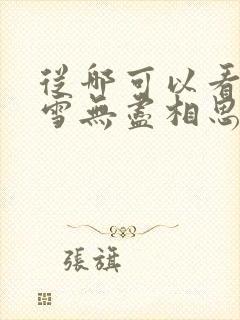 從哪可以看
雪無盡相思
張旗